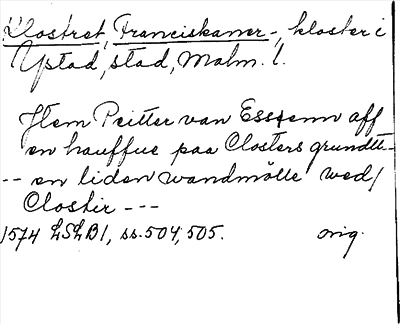 Klostret, Franciskaner-, kloster i
Ystad, stad, Malm. l.
Jtem Peitter van Essenn aff
en hauffue paa Closters grundtt-
-- en liden wandmölle wed/
Clostir ---
1574 LSLB1, ss. 504, 505. orig.